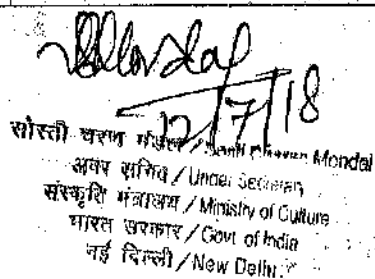 12/7/18
सोस्ती चरण मंडल / Sosti Charan Mondal
अवर सचिव / Under Secretary
संस्कृति मंत्रालय / Ministry of Culture
भारत सरकार / Govt of India
नई दिल्ली / New Delhi